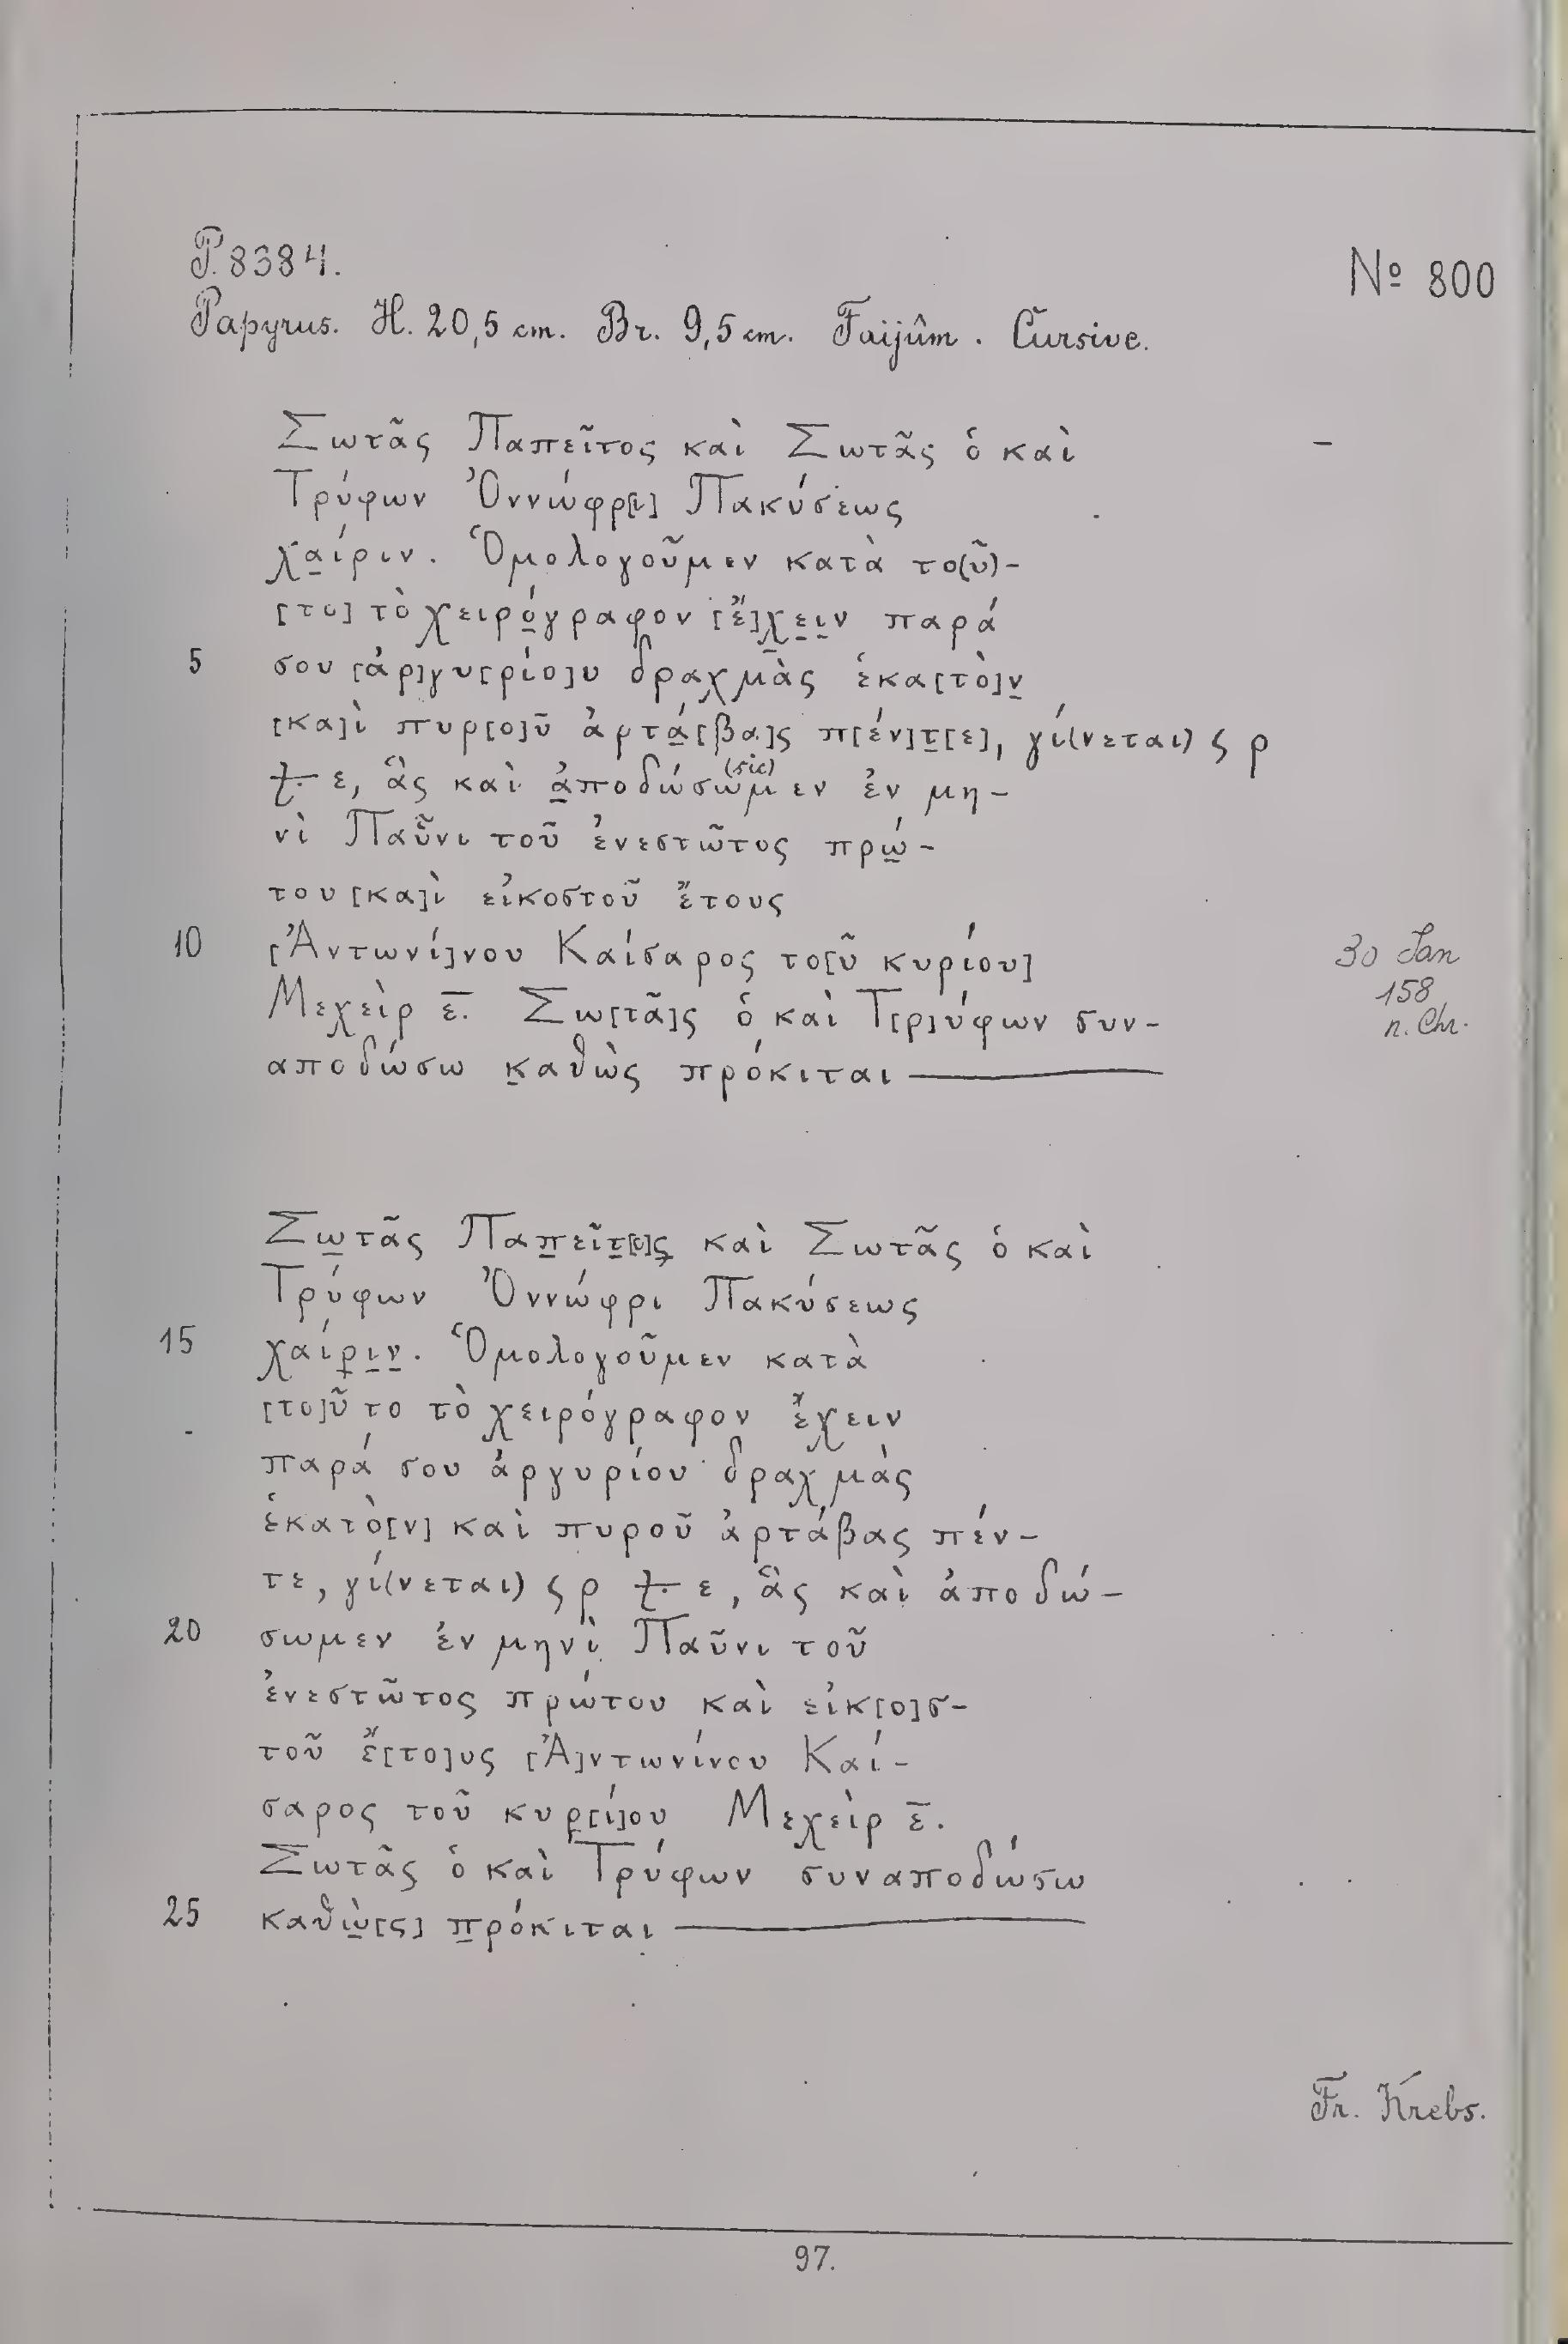 P. 8384.
Nº 800
Papyrus. H. 20,5 cm. Br. 9,5 cm. Faijûm. Cursive.
Σωτᾶς Παπεῖτος καὶ Σωτᾶς ὁ καὶ
Τρύφων Ὀννώφρ[ι] Πακύσεως
χα̣ίριν. Ὁμολογοῦμεν κατὰ το(ῦ)-
[το] τὸ χειρό̣γραφον [ἔ]χ̣ε̣ι̣ν παρά
5 σου [ἀρ]γυ[ρίο]υ δραχμὰς ἑκα[τὸ]ν̣
[κα]ὶ πυρ[ο]ῦ ἀρτά̣[βα]ς π[έν]τ̣[ε], γί(νεται) ς ρ
ε, ἃς καὶ ἀ̣ποδώσωμεν (sic) ἐν μη-
νὶ Παῦνι τοῦ ἐνεστῶτος πρώ̣-
του [κα]ὶ εἰκοστοῦ ἔτους
10 [Ἀντωνί]νου Καίσαρος το[ῦ κυρίου]
30 Jan
158
n. Chr.
Μεχεὶρ ε̅. Σω[τᾶ]ς ὁ καὶ Τ[ρ]ύφων συν-
αποδώσω κ̣αθὼς πρόκιται
Σω̣τᾶς Παπ̣εῖτ̣[ο]ς̣ καὶ Σωτᾶς ὁ καὶ
Τρύφων Ὀννώφρι Πακύσεως
15 χαίρ̣ι̣ν̣. Ὁμολογοῦμεν κατὰ
[το]ῦτο τὸ χειρόγραφον ἔχειν
παρά σου ἀργυρίου δραχμὰς
ἑκατὸ[ν] καὶ πυροῦ ἀρτάβας πέν-
τε, γί(νεται) ς ρ ε, ἃς καὶ ἀποδώ-
20 σωμεν ἐν μηνὶ Παῦνι τοῦ
ἐνεστῶτος πρώτου καὶ εἰκ[ο]σ-
τοῦ ἔ[το]υς [Ἀ]ντωνίνου Καί-
σαρος τοῦ κυρ̣[ί]ου Μεχεὶρ ε̅.
Σωτᾶς ὁ καὶ Τρύφων συναποδώσω
25 καθὼ̣[ς] π̣ρόκιται
Fr. Krebs.
97.